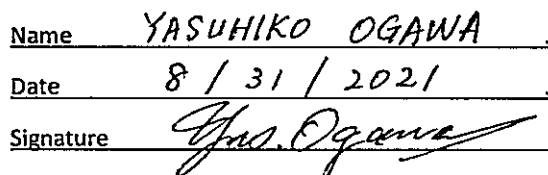 Name YASUHIKO OGAWA
Date 8 / 31 / 2021
Signature Yas. Ogawa